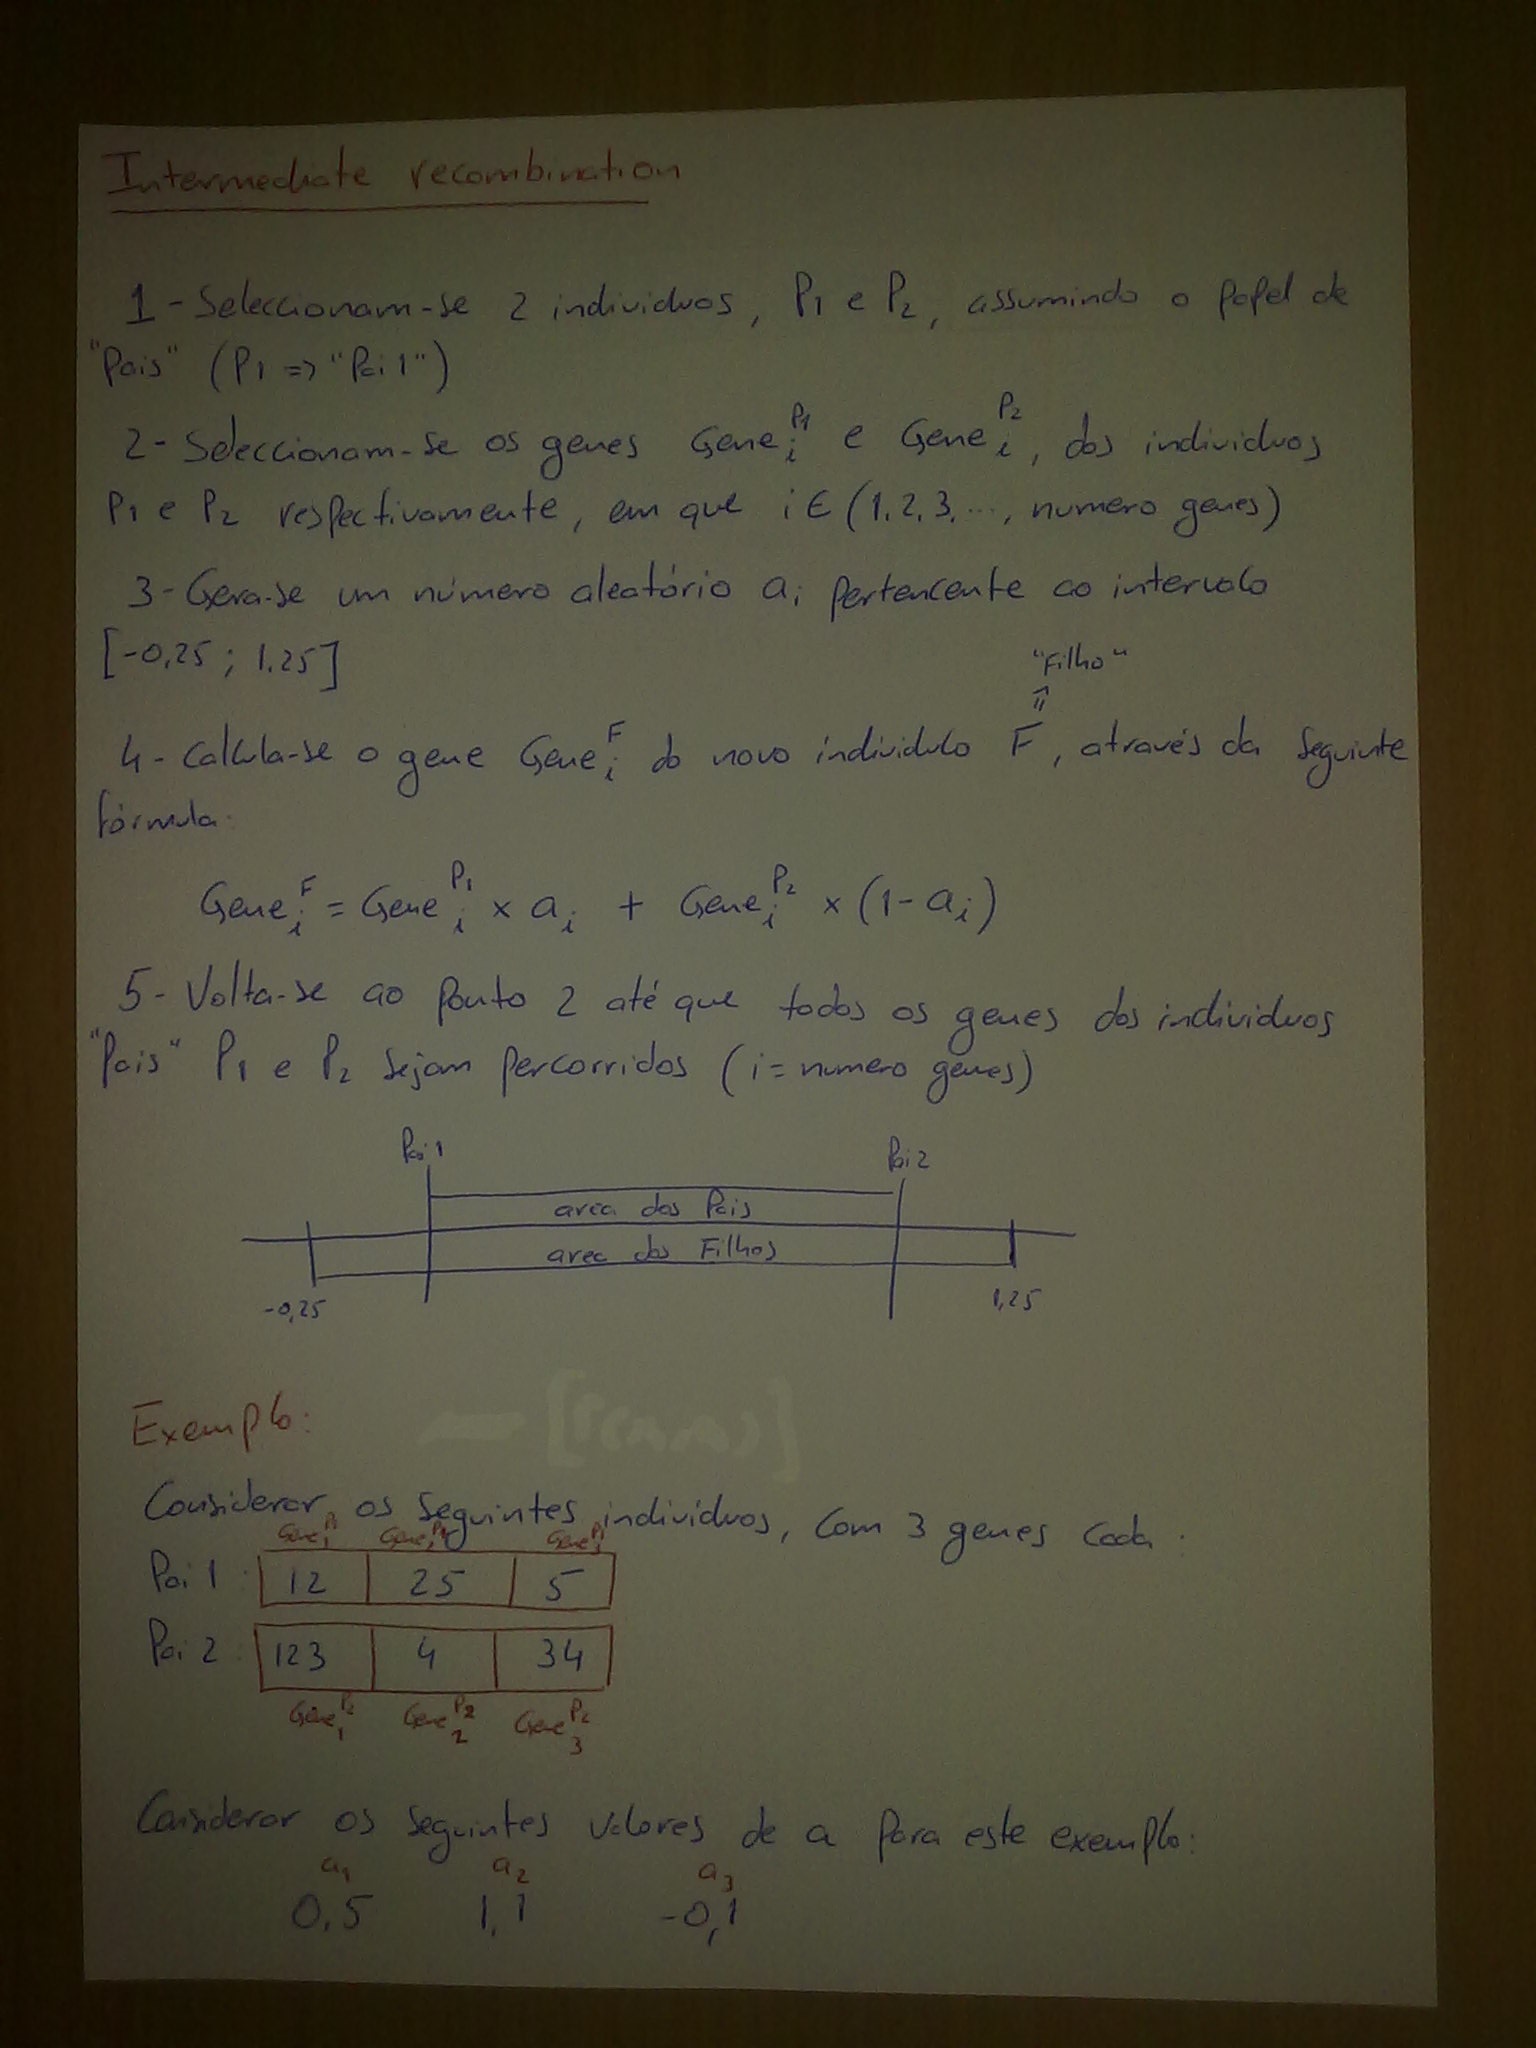 Intermediate recombination
1 - Seleccionam-se 2 individuos, P1 e P2, assumindo o papel de
"Pais" (P1 => "Pai 1")
2 - Seleccionam-se os genes Gene_i^P1 e Gene_i^P2, dos individuos
P1 e P2 respectivamente, em que i ∈ (1, 2, 3, ..., numero genes)
3 - Gera-se um número aleatório a_i pertencente ao intervalo
[-0,25 ; 1.25]
"Filho"
⇑
4 - Calcula-se o gene Gene_i^F do novo individulo F, através da seguinte
fórmula:
Gene_i^F = Gene_i^P1 × a_i + Gene_i^P2 × (1 - a_i)
5 - Volta-se ao ponto 2 até que todos os genes dos individuos
"Pais" P1 e P2 sejam percorridos (i = numero genes)
Pai 1 Pai 2
area dos Pais
area dos Filhos
-0,25 1,25
Exemplo:
Considerar os seguintes individuos, com 3 genes cada:
Gene_1^P1
Pai 1: 12 25 5
Pai 2: 123 4 34
Gene_1^P2 Gene_2^P2 Gene_3^P2
Considerar os seguintes valores de a para este exemplo:
a_1 a_2 a_3
0,5 1,1 -0,1